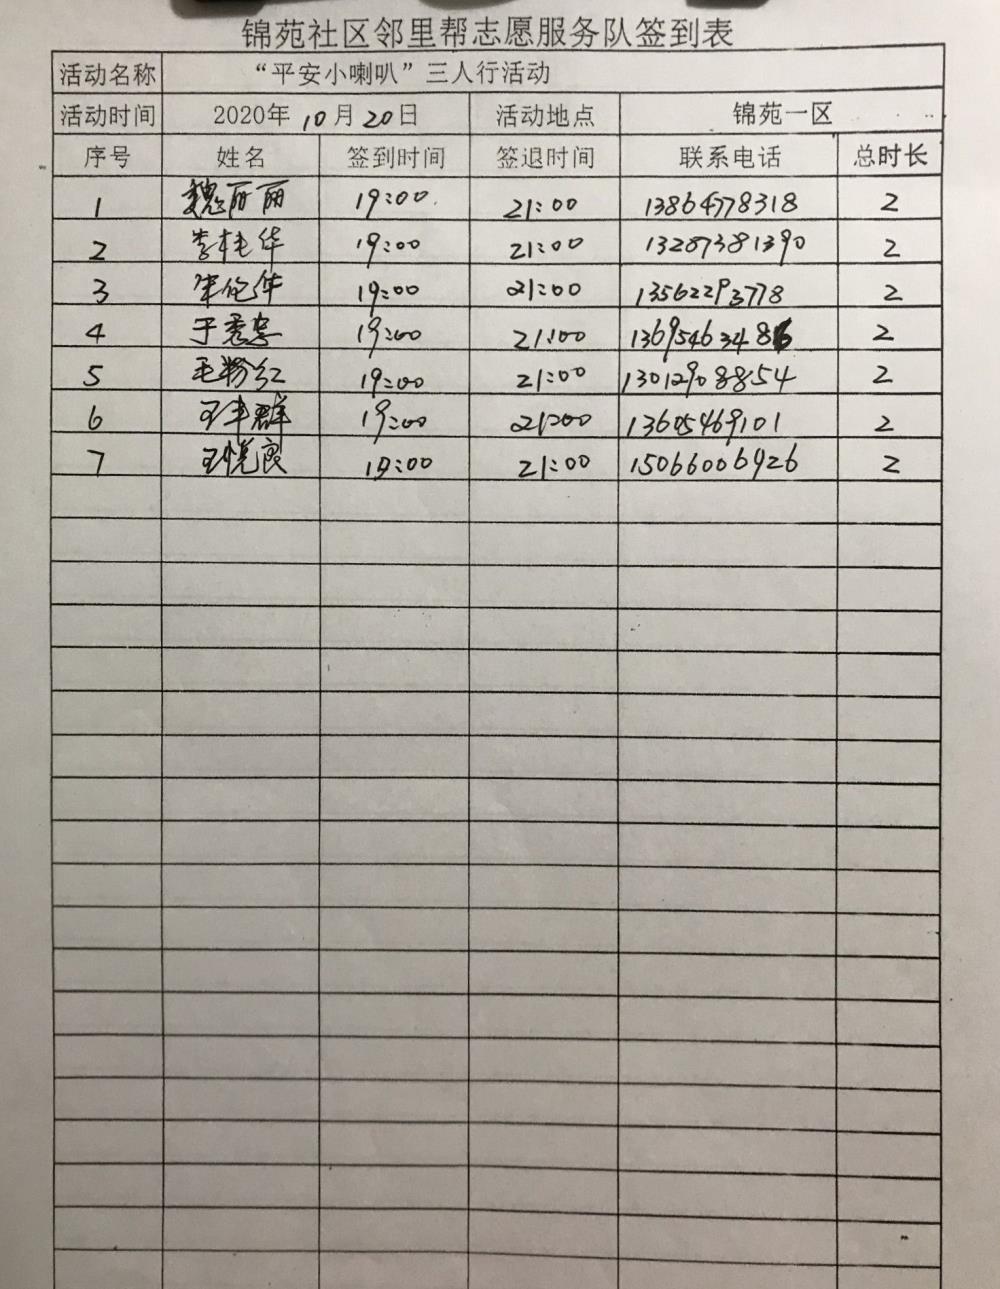 锦苑社区邻里帮志愿服务队签到表
活动名称 “平安小喇叭”三人行活动
活动时间 2020年10月20日 活动地点 锦苑一区
序号 姓名 签到时间 签退时间 联系电话 总时长
1 魏丽丽 19:00 21:00 13864778318 2
2 李桂华 19:00 21:00 13287381390 2
3 19:00 21:00 13562293778 2
4 于秀忠 19:00 21:00 2
5 毛粉红 19:00 21:00 13012908854 2
6 王丰群 19:00 21:00 13605469101 2
7 王悦良 19:00 21:00 15066006926 2